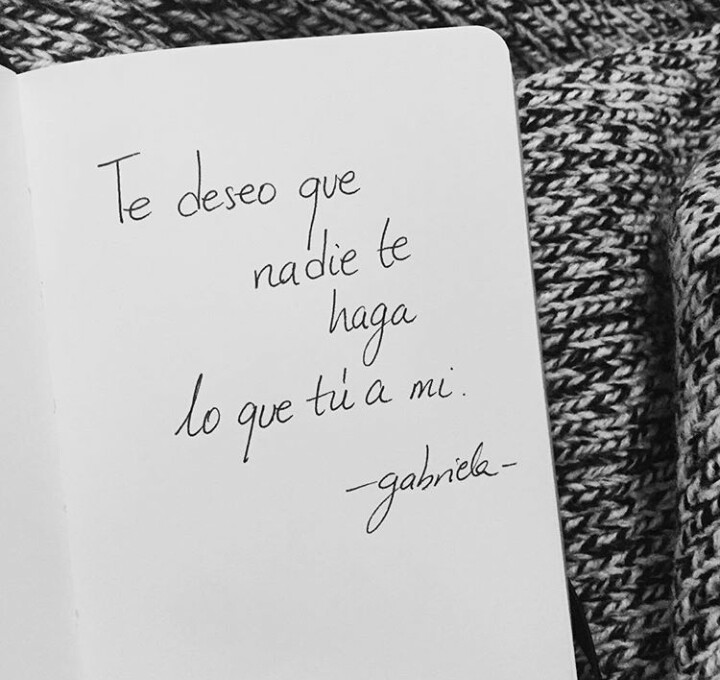 Te deseo que
nadie te
haga
lo que tú a mi.
-gabriela-